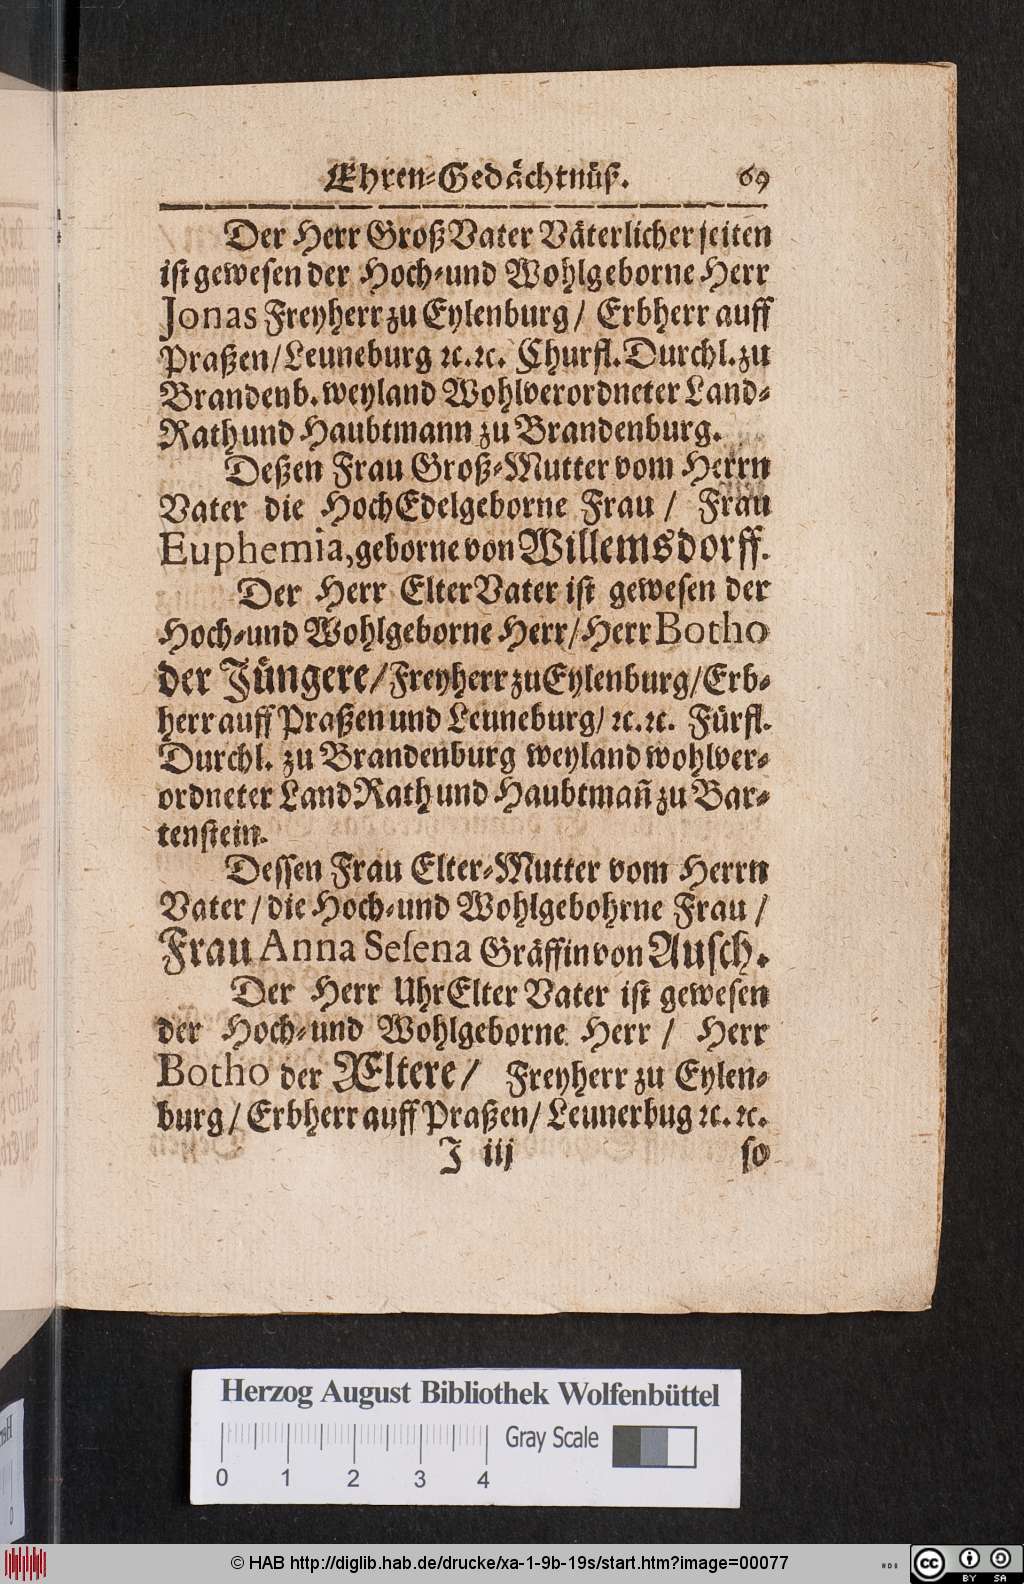 Ehren-Gedächtnüß. 69
Der Herr GroßVater Väterlicher seiten
ist gewesen der Hoch-und Wohlgeborne Herr
Jonas Freyherr zu Eylenburg/ Erbherr auff
Praßen/ Leuneburg ꝛc. ꝛc. Churfl. Durchl. zu
Brandenb. weyland Wohlverordneter Land-
Rath und Haubtmann zu Brandenburg.
Deßen Frau Groß-Mutter vom Herrn
Vater die HochEdelgeborne Frau / Frau
Euphemia, geborne von Willemsdorff.
Der Herr ElterVater ist gewesen der
Hoch-und Wohlgeborne Herr/ Herr Botho
der Jüngere/ Freyherr zu Eylenburg/ Erb-
herr auff Praßen und Leuneburg/ ꝛc. ꝛc. Fürfl.
Durchl. zu Brandenburg weyland wohlver-
ordneter LandRath und Haubtmañ zu Bar-
tenstein.
Dessen Frau Elter-Mutter vom Herrn
Vater / die Hoch-und Wohlgebohrne Frau /
Frau Anna Selena Gräffin von Ausch.
Der Herr UhrElter Vater ist gewesen
der Hoch-und Wohlgeborne Herr / Herr
Botho der Æltere/ Freyherr zu Eylen-
burg / Erbherr auff Praßen/ Leunerbug ꝛc. ꝛc.
J iij so
Herzog August Bibliothek Wolfenbüttel
Gray Scale
0 1 2 3 4
© HAB http://diglib.hab.de/drucke/xa-1-9b-19s/start.htm?image=00077
cc BY SA